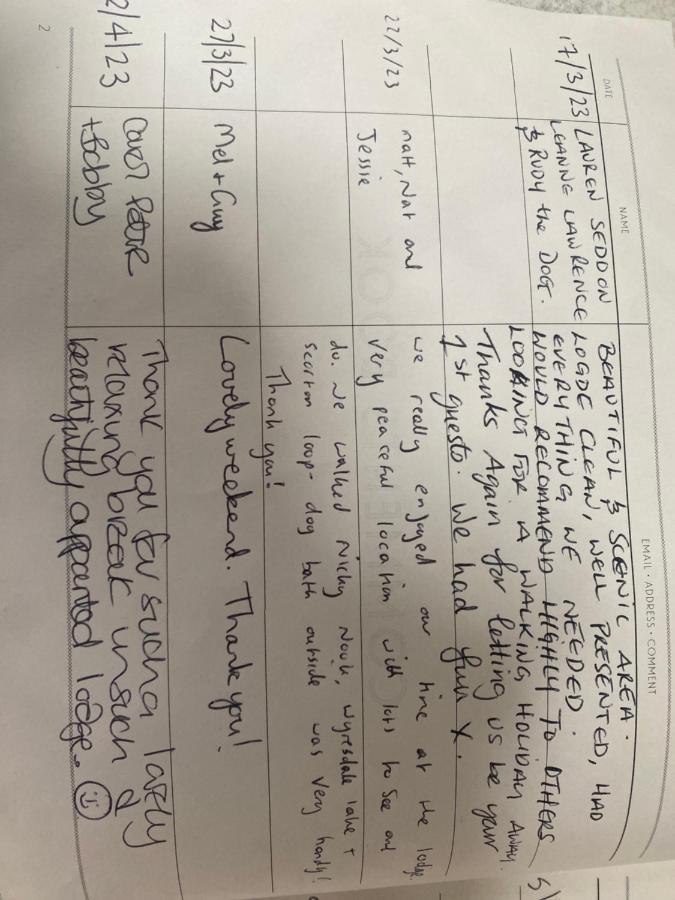 DATE NAME EMAIL · ADDRESS · COMMENT
17/3/23 LAUREN SEDDON BEAUTIFUL & SCENIC AREA.
LEANNE LAWRENCE LOGDE CLEAN, WELL PRESENTED, HAD
& RUDY the DOG. EVERYTHING WE NEEDED.
WOULD RECOMMEND HIGHLY TO OTHERS
LOOKING FOR A WALKING HOLIDAY AWAY.
Thanks Again for letting us be your
1st guests. We had fun X.
22/3/23 Matt, Nat and we really enjoyed our time at the lodge
Jessie very peaceful location with lots to see and
do. We walked Nicky Nook, Wyresdale lake +
scorton loop - dog bath outside was very handy!
Thank you!
27/3/23 Mel + Guy Lovely weekend. Thank you!
2/4/23 Carol Thank you for such a lovely
+ Bobby relaxing break in such a
beautifully appointed lodge. ☺
2